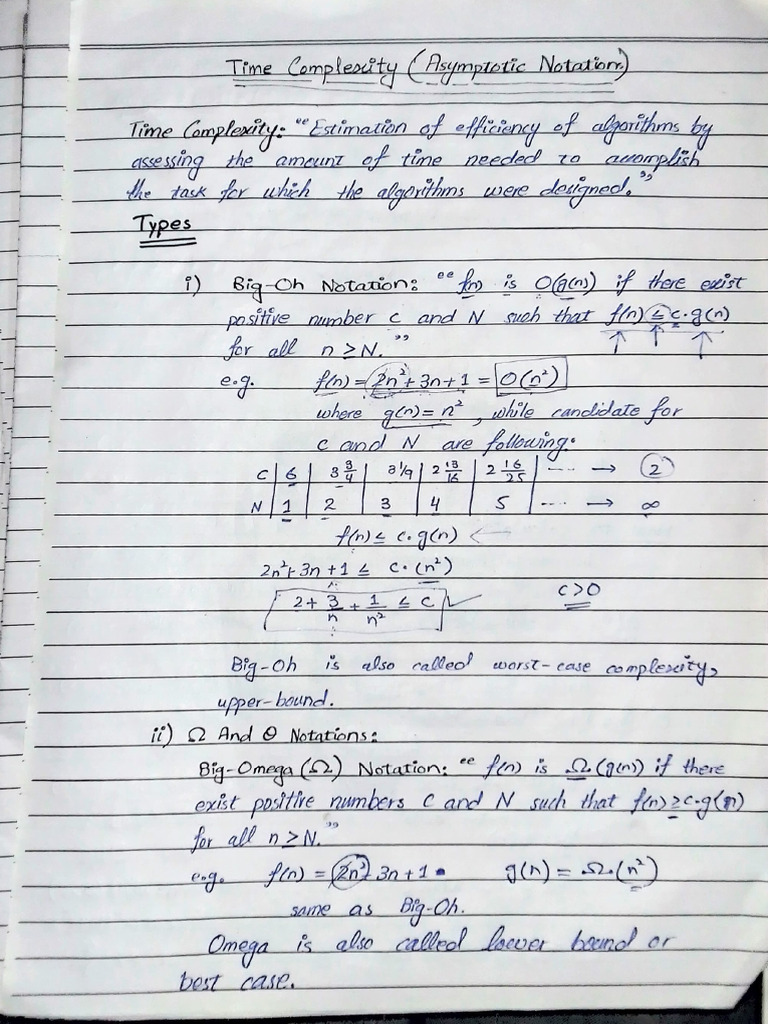 Time Complexity (Asymptotic Notation)
Time Complexity: "Estimation of efficiency of algorithms by
assessing the amount of time needed to accomplish
the task for which the algorithms were designed."
Types
i) Big-Oh Notation: "f(n) is O(g(n)) if there exist
positive number c and N such that f(n) ≤ c·g(n)
for all n ≥ N."
e.g. f(n) = 2n² + 3n + 1 = O(n²)
where g(n) = n², while candidate for
c and N are following:
C | 6 | 3 3/4 | 3 1/9 | 2 13/16 | 2 16/25 | ---- → 2
N | 1 | 2 | 3 | 4 | 5 | ---- → ∞
f(n) ≤ c·g(n) ←
2n² + 3n + 1 ≤ c·(n²)
2 + 3/n + 1/n² ≤ c ✓ c > 0
Big-Oh is also called worst-case complexity,
upper-bound.
ii) Ω And Θ Notations:
Big-Omega (Ω) Notation: "f(n) is Ω(g(n)) if there
exist positive numbers c and N such that f(n) ≥ c·g(n)
for all n ≥ N."
e.g. f(n) = 2n² + 3n + 1 g(n) = Ω·(n²)
same as Big-Oh.
Omega is also called lower bound or
best case.